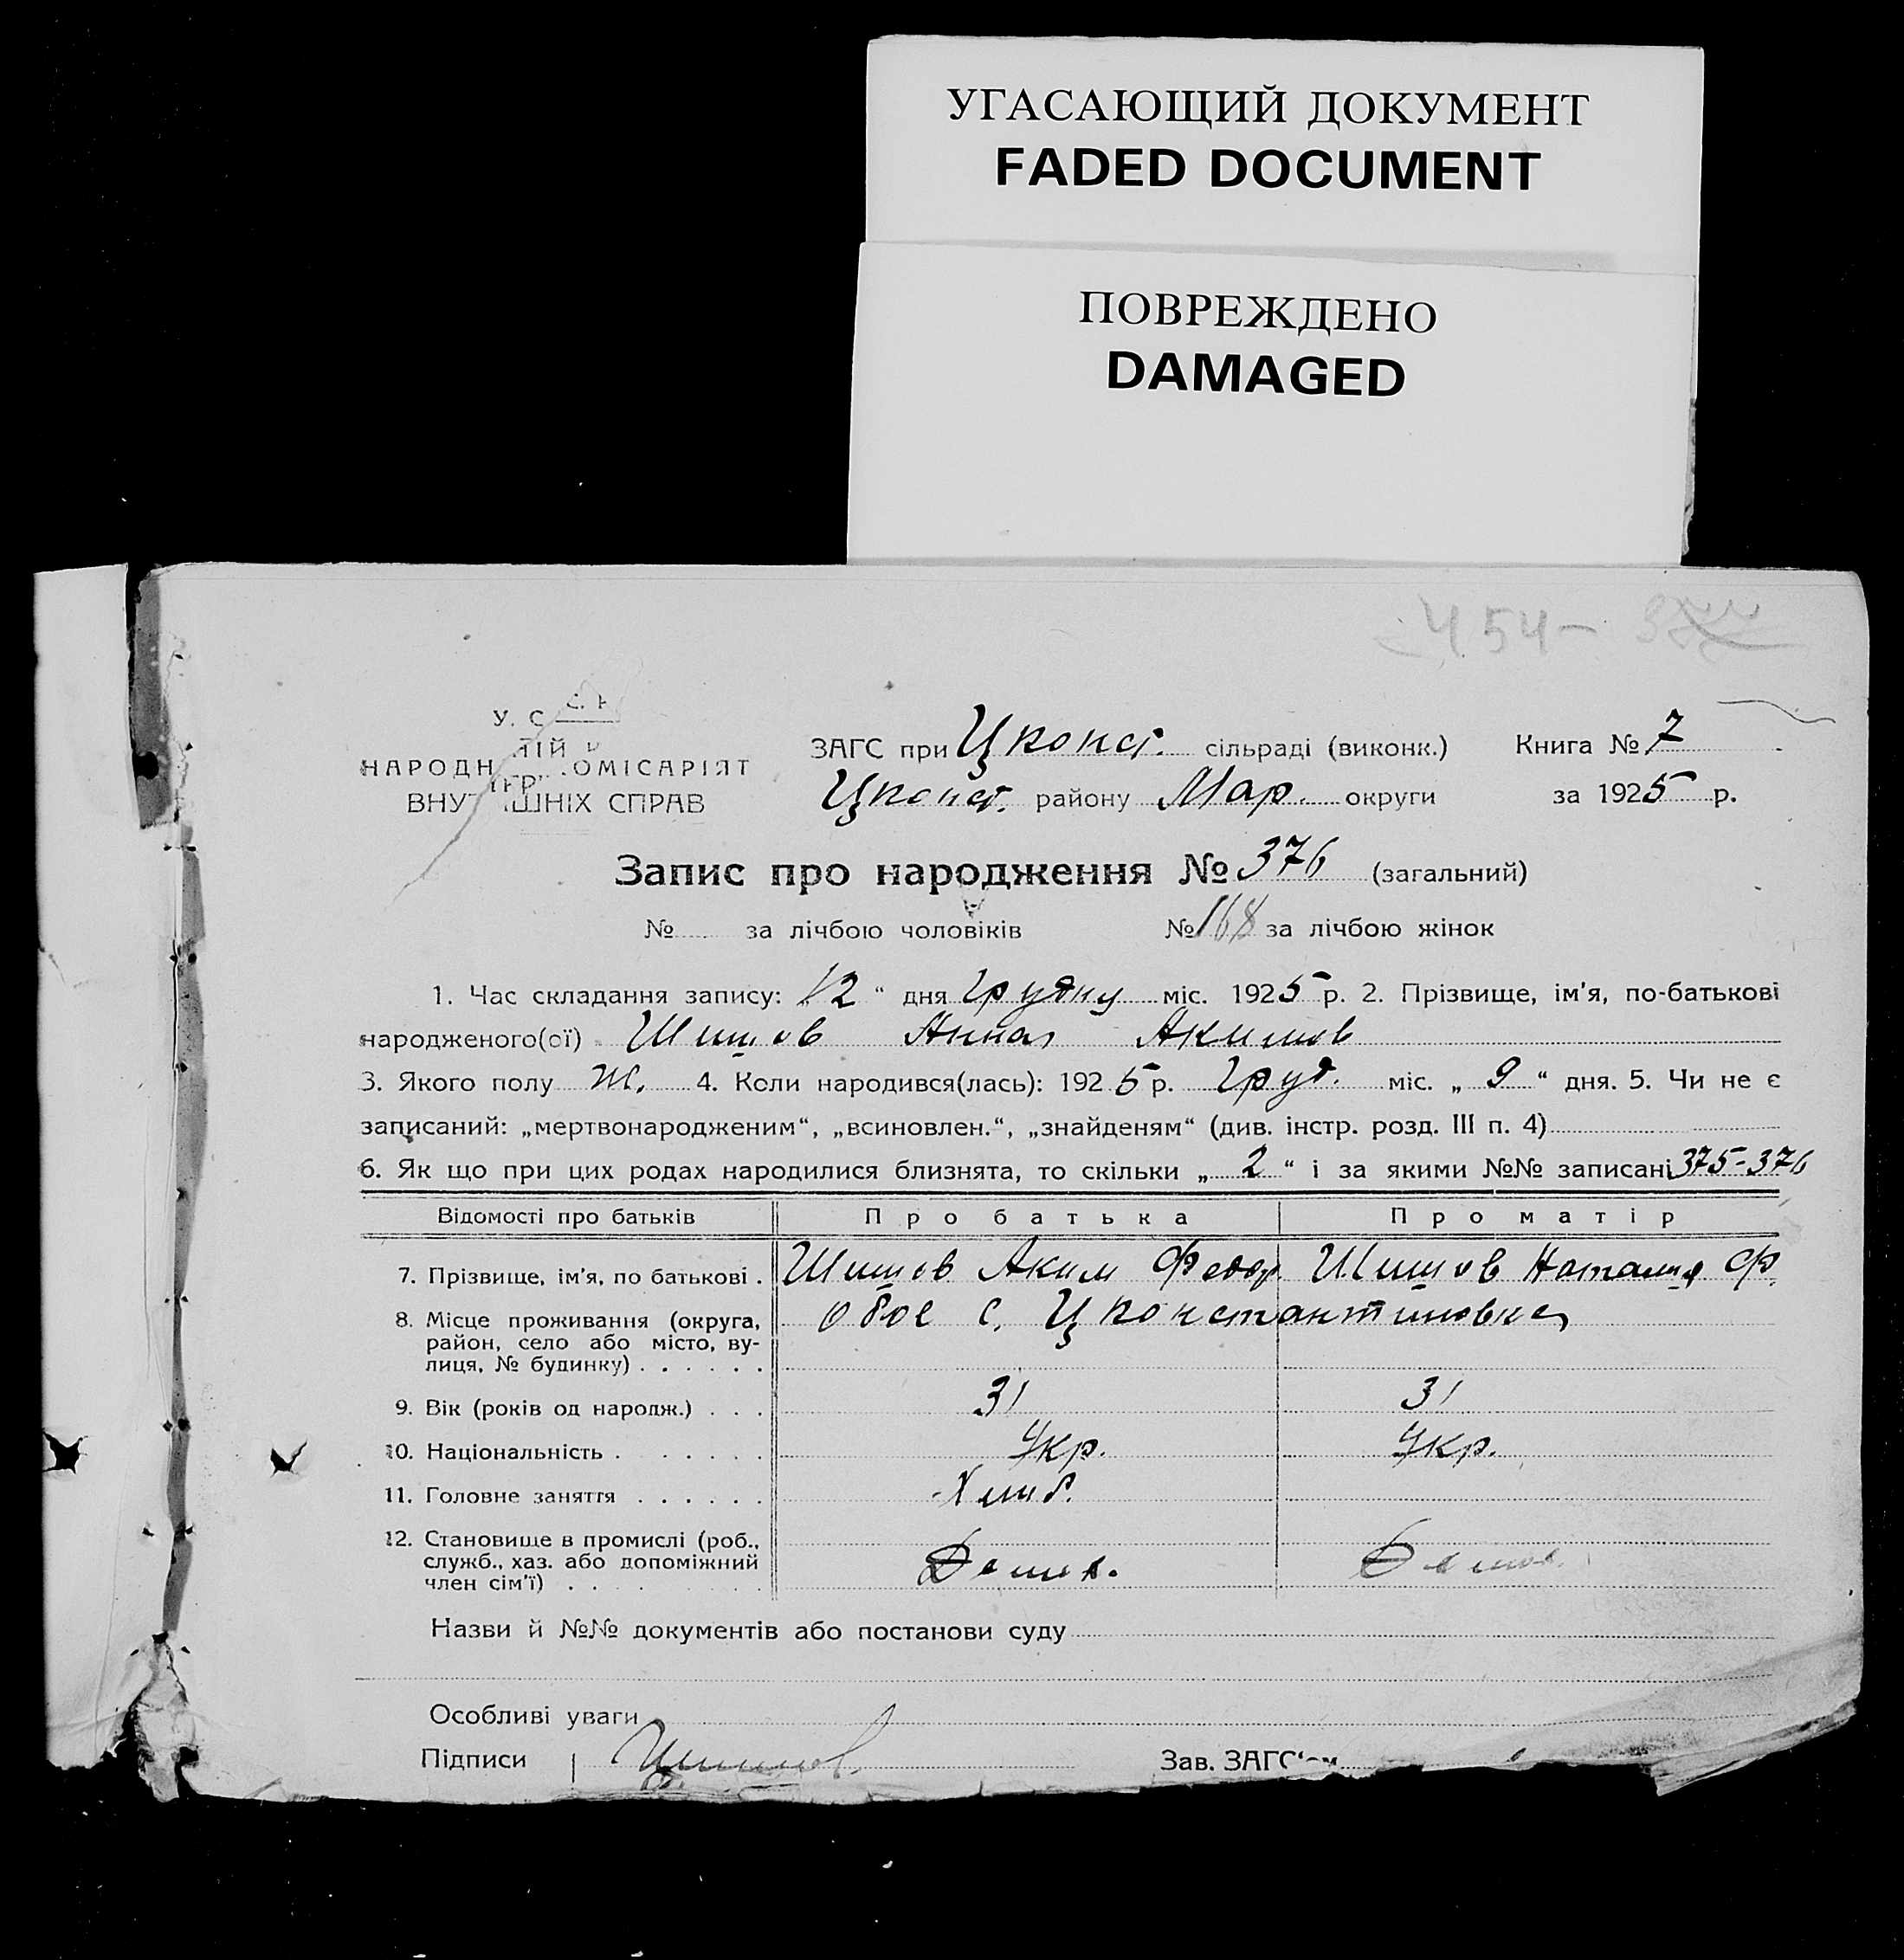 УГАСАЮЩИЙ ДОКУМЕНТ
FADED DOCUMENT
ПОВРЕЖДЕНО
DAMAGED
454 - 377
У. С
НАРОДН ОМІСАРІЯТ
ВНУ ІШНІХ СПРАВ
ЗАГС при Цконст. сільраді (виконк.) Книга № 7
Цконст. району Мар. округи за 1925 р.
Запис про народження № 376 (загальний)
№ за лічбою чоловіків № 168 за лічбою жінок
1. Час складання запису: „12“ дня Грудну міс. 1925 р. 2. Прізвище, ім'я, по-батькові
народженого(ої) Шишов Анна Акимов
3. Якого полу Ж. 4. Коли народився(лась): 1925 р. Груд. міс. „ 9 “ дня. 5. Чи не є
записаний: „мертвонародженим“, „всиновлен.“, „знайденям“ (див. інстр. розд. III п. 4)
6. Як що при цих родах народилися близнята, то скільки „ 2 “ і за якими №№ записані 375-376
Відомості про батьків Про батька Про матір
7. Прізвище, ім'я, по батькові . Шишов Аким Федор. Шишов Наталия Ф.
8. Місце проживання (округа, обое с. Цконстантиновка
район, село або місто, ву-
лиця, № будинку) . . . . . .
9. Вік (років од народж.) . . . 31 31
10. Національність . . . . . . Укр. Укр.
11. Головне заняття . . . . . . Хлиб.
12. Становище в промислі (роб.,
служб., хаз. або допоміжний
член сім'ї) . .
Назви й №№ документів або постанови суду
Особливі уваги
Підписи Шишов. Зав. ЗАГС'ом